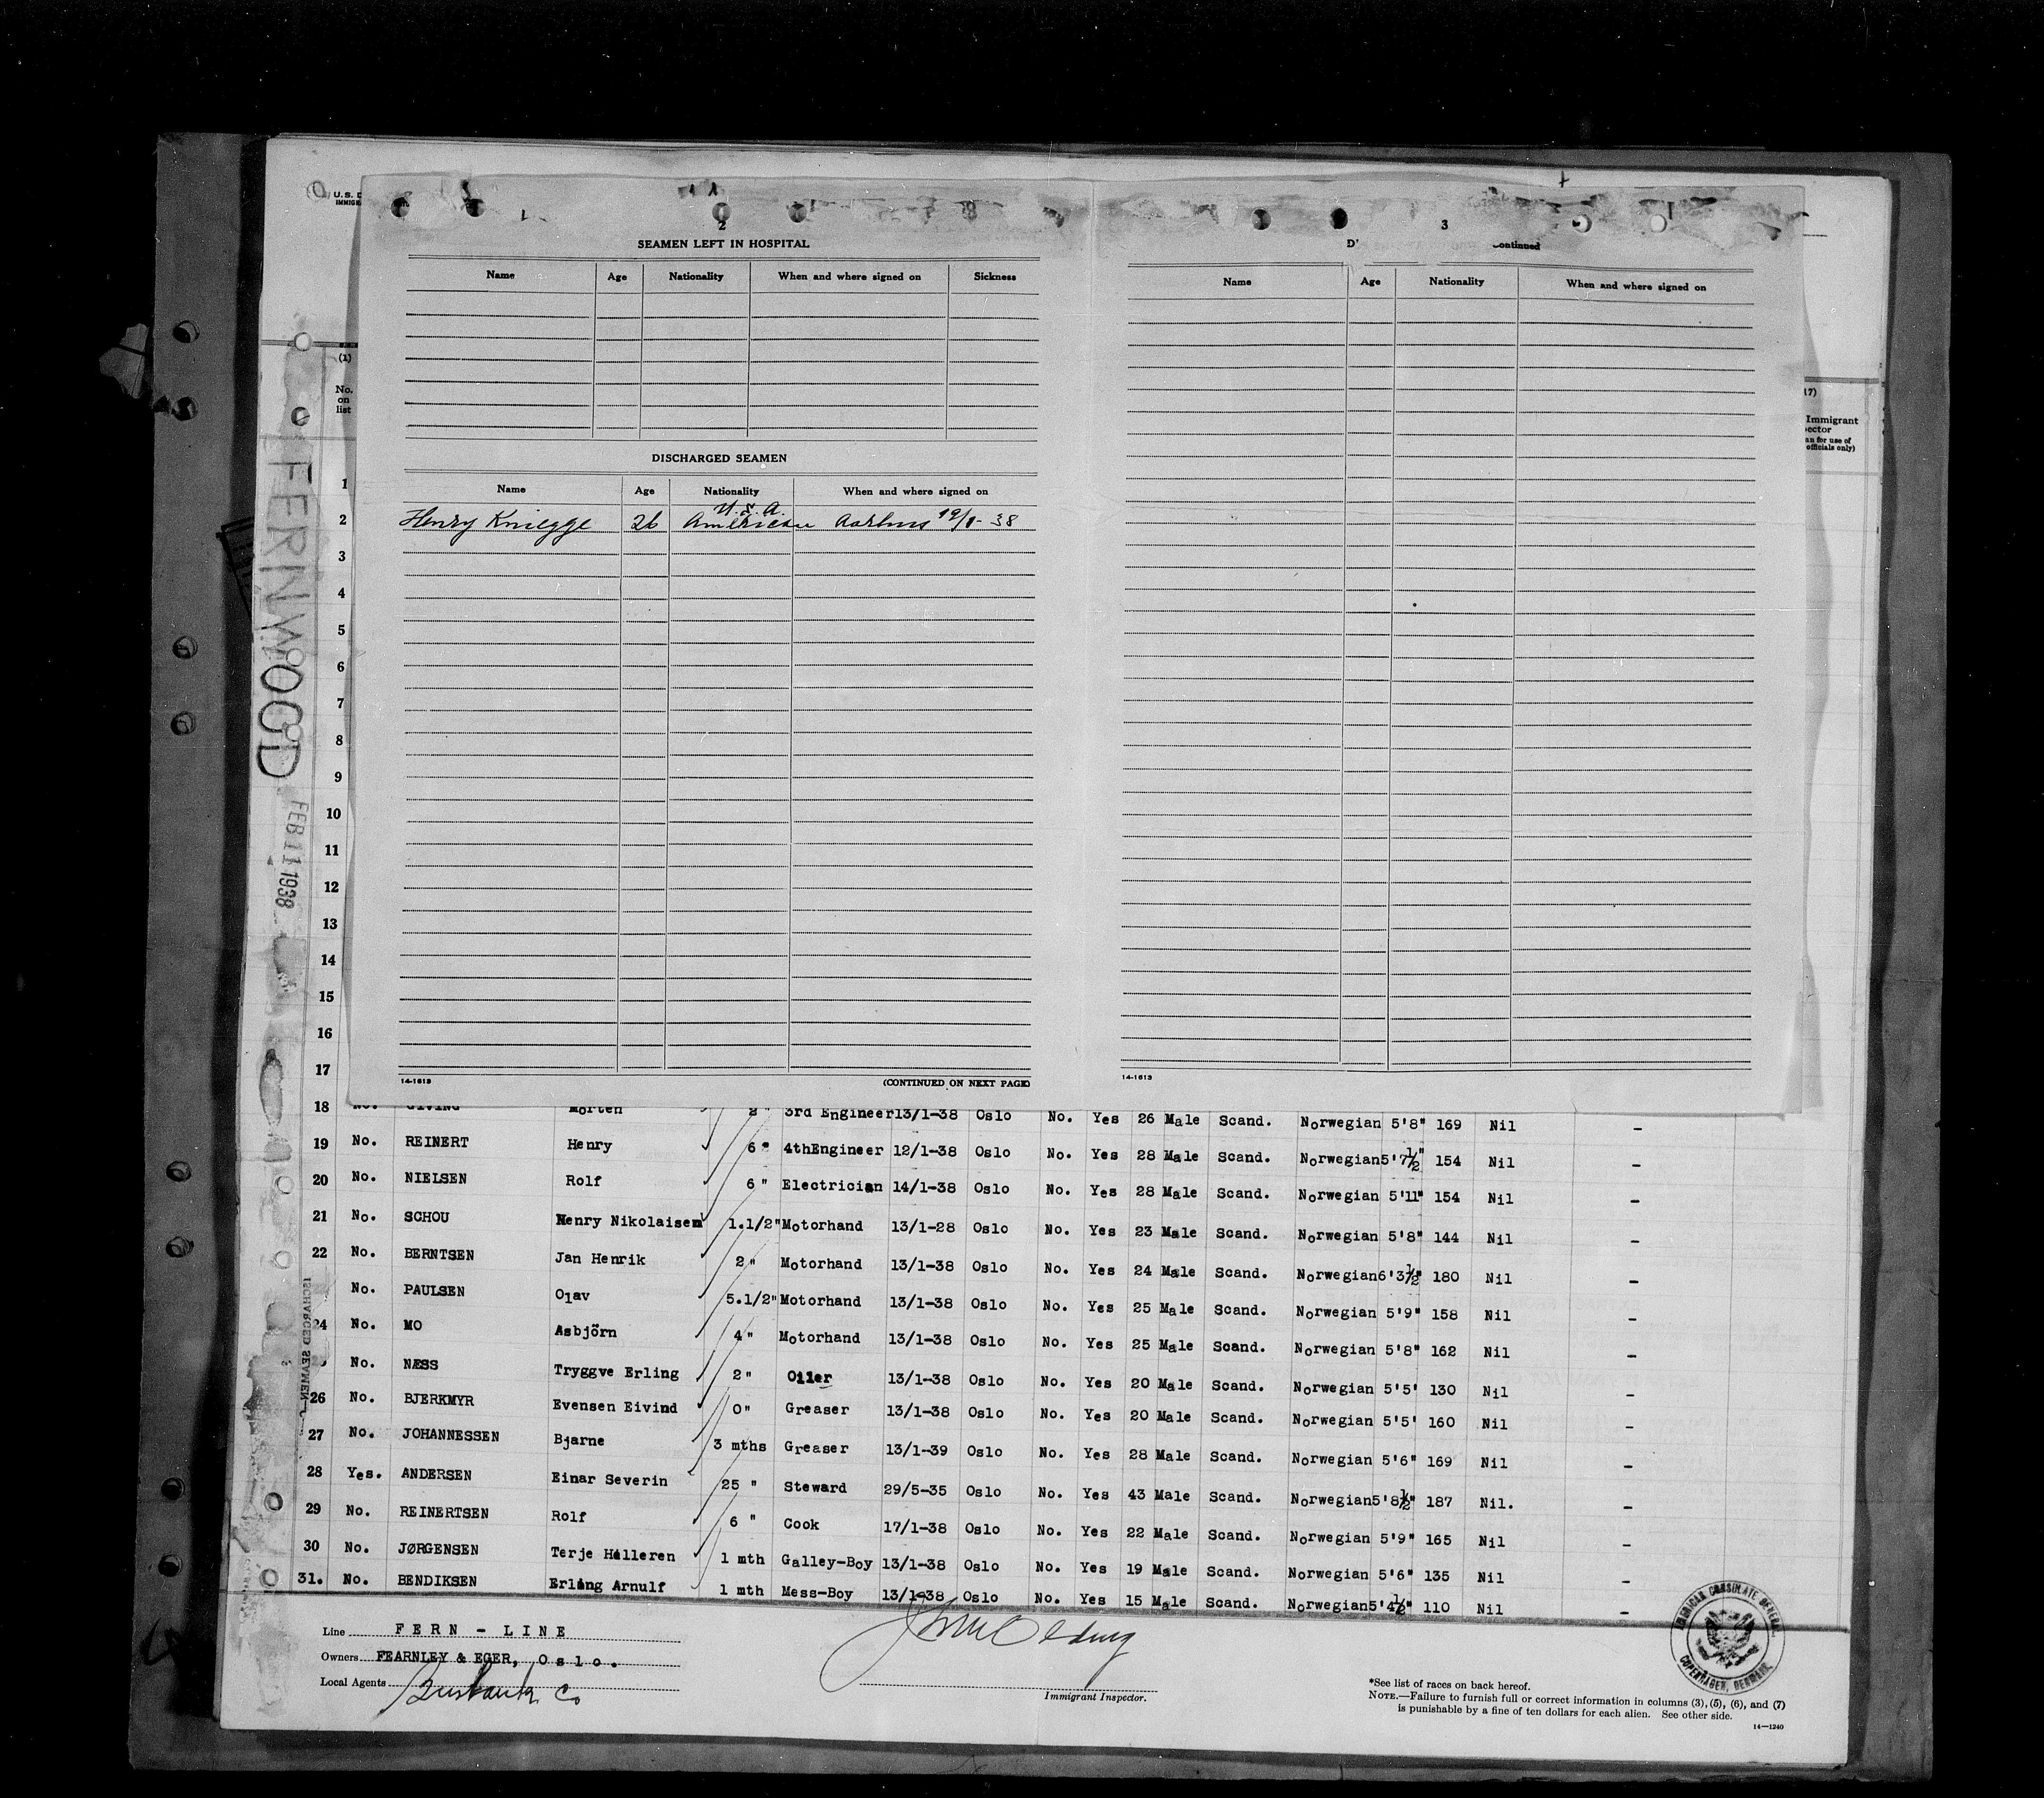 U.S. D
IMMIGRA
2
SEAMEN LEFT IN HOSPITAL
Name Age Nationality When and where signed on Sickness
DISCHARGED SEAMEN
Name Age Nationality When and where signed on
U.S.A.
Henry Kniegge 26 American Aarhus 19/1-38
14-1613 (CONTINUED ON NEXT PAGE)
3
D' ontinued
Name Age Nationality When and where signed on
14-1613
(1)
No.
on
list
17)
Immigrant
ector
an for use of
officials only)
FERNWOOD
FEB 11 1938
1
2
3
4
5
6
7
8
9
10
11
12
13
14
15
16
17
18 No. GIVING Morten 2" 3rd Engineer 13/1-38 Oslo No. Yes 26 Male Scand. Norwegian 5'8" 169 Nil –
19 No. REINERT Henry 6" 4thEngineer 12/1-38 Oslo No. Yes 28 Male Scand. Norwegian 5'7½" 154 Nil –
20 No. NIELSEN Rolf 6" Electrician 14/1-38 Oslo No. Yes 28 Male Scand. Norwegian 5'11" 154 Nil –
21 No. SCHOU Henry Nikolaisen 1.1/2" Motorhand 13/1-28 Oslo No. Yes 23 Male Scand. Norwegian 5'8" 144 Nil –
22 No. BERNTSEN Jan Henrik 2" Motorhand 13/1-38 Oslo No. Yes 24 Male Scand. Norwegian 6'3½" 180 Nil –
No. PAULSEN Olav 5.1/2" Motorhand 13/1-38 Oslo No. Yes 25 Male Scand. Norwegian 5'9" 158 Nil –
24 No. MO Asbjörn 4" Motorhand 13/1-38 Oslo No. Yes 25 Male Scand. Norwegian 5'8" 162 Nil –
No. NÆSS Tryggve Erling 2" Oiler 13/1-38 Oslo No. Yes 20 Male Scand. Norwegian 5'5' 130 Nil –
26 No. BJERKMYR Evensen Eivind 0" Greaser 13/1-38 Oslo No. Yes 20 Male Scand. Norwegian 5'5' 160 Nil –
27 No. JOHANNESSEN Bjarne 3 mths Greaser 13/1-39 Oslo No. Yes 28 Male Scand. Norwegian 5'6" 169 Nil –
28 Yes. ANDERSEN Einar Severin 25 " Steward 29/5-35 Oslo No. Yes 43 Male Scand. Norwegian 5'8½" 187 Nil. –
29 No. REINERTSEN Rolf 6 " Cook 17/1-38 Oslo No. Yes 22 Male Scand. Norwegian 5'9" 165 Nil –
30 No. JØRGENSEN Terje Hålleren 1 mth Galley-Boy 13/1-38 Oslo No. Yes 19 Male Scand. Norwegian 5'6" 135 Nil –
31. No. BENDIKSEN Erling Arnulf 1 mth Mess-Boy 13/1-38 Oslo No. Yes 15 Male Scand. Norwegian 5'4½" 110 Nil –
Line FERN - LINE
Owners FEARNLEY & EGER, Oslo.
Local Agents Burbank Co
Immigrant Inspector.
AMERICAN CONSULATE GENERAL.
COPENHAGEN, DENMARK.
*See list of races on back hereof.
NOTE.—Failure to furnish full or correct information in columns (3), (5), (6), and (7)
is punishable by a fine of ten dollars for each alien. See other side.
14—1240